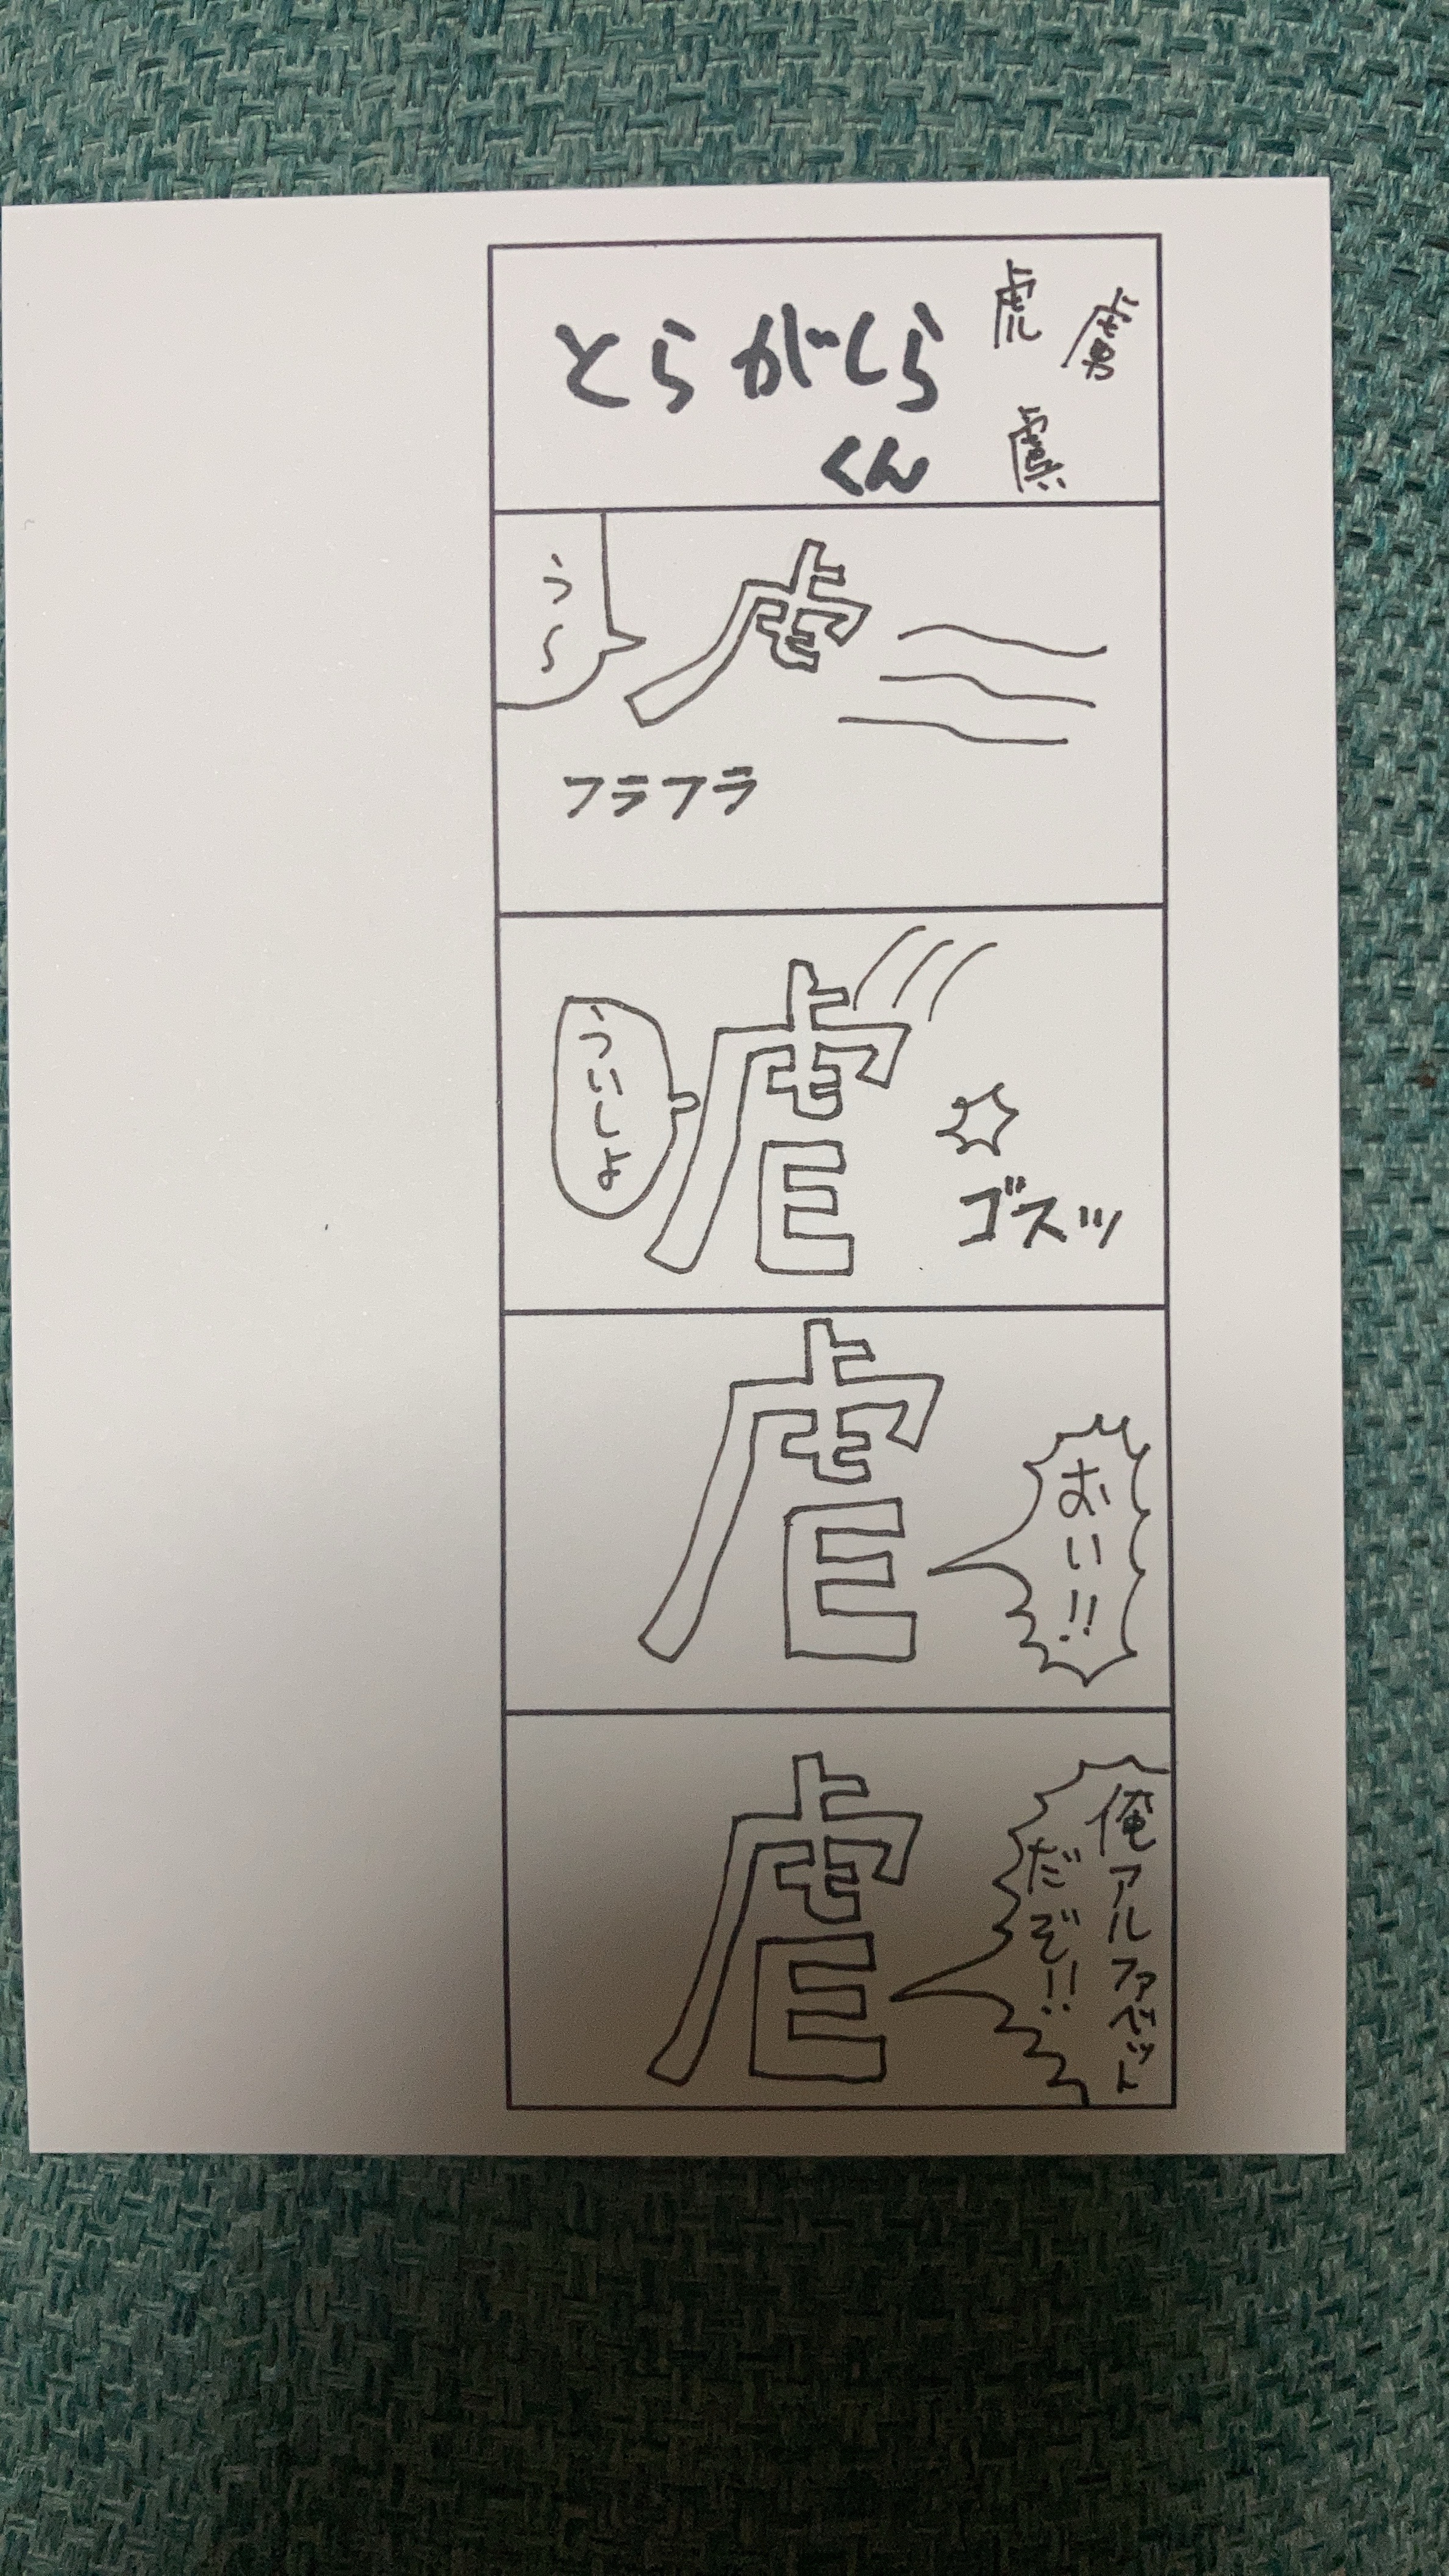 とらがしら
くん
虎
膚
慮
う〜
フラフラ
ういしょ
ゴスッ
E
おい!!
E
俺アルファベット
だぞ!!
E